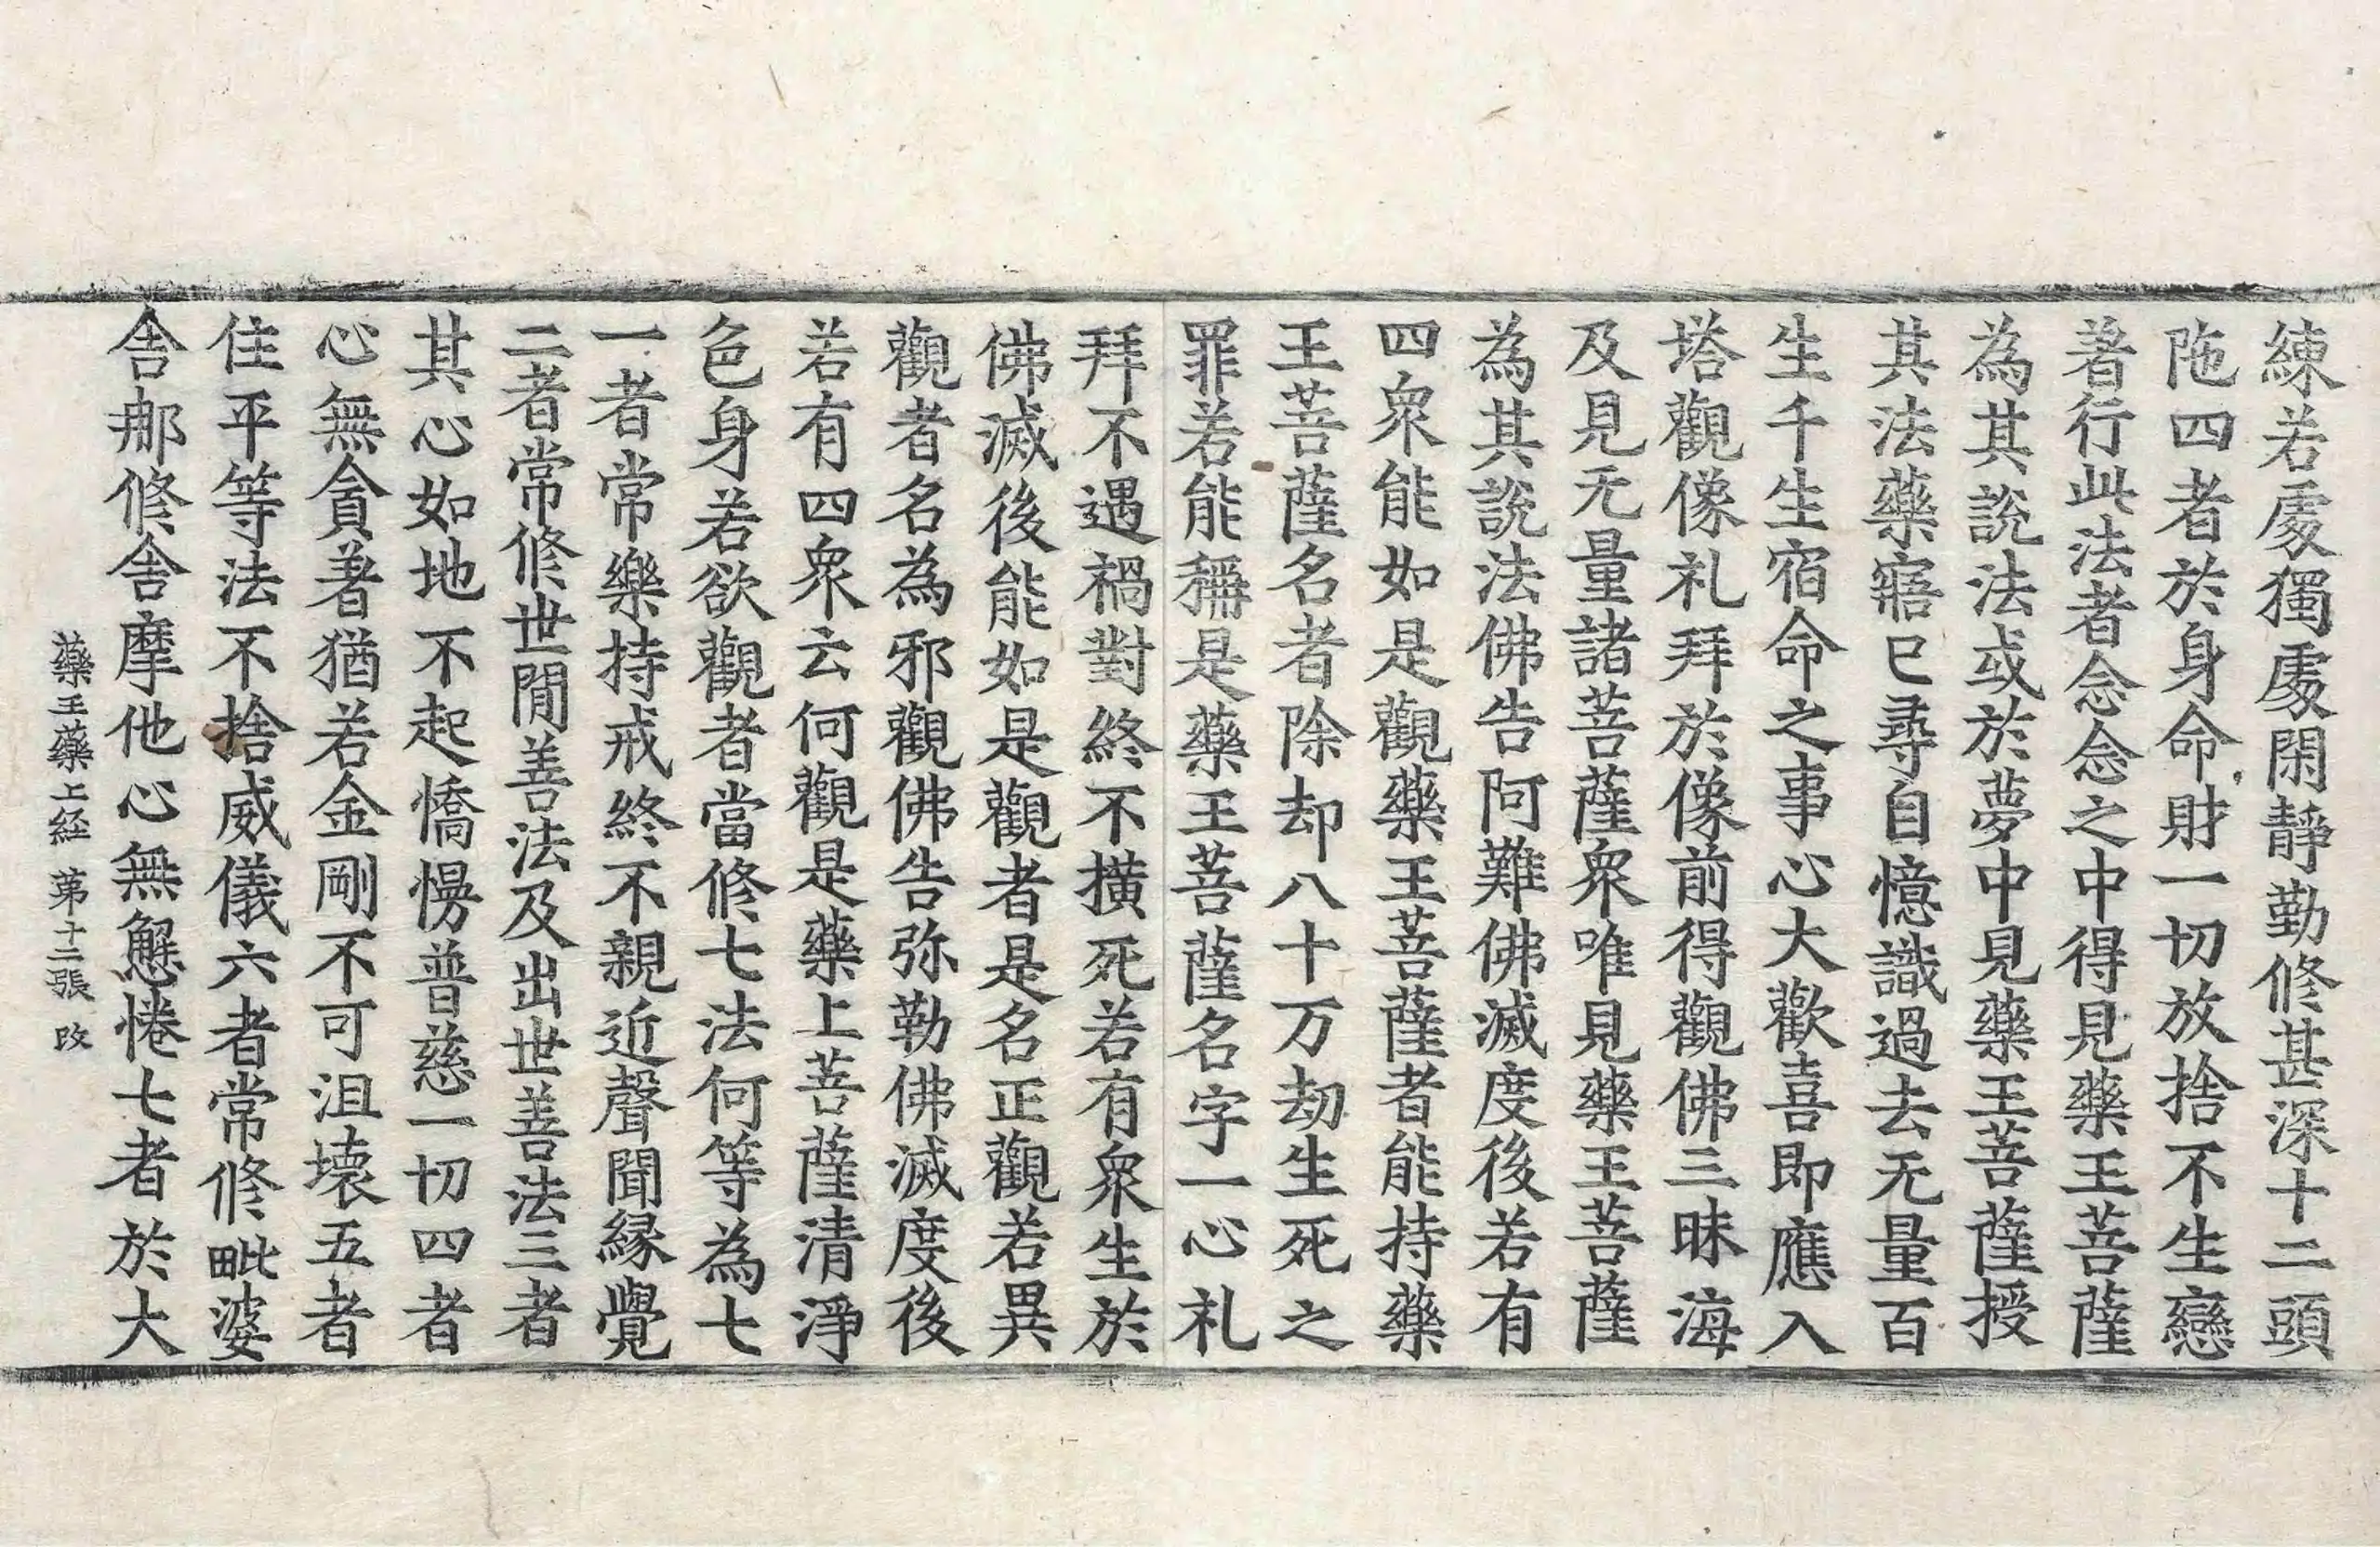 練若處獨處閑靜勤修甚深十二頭
陁四者於身命財一切放捨不生戀
著行此法者念念之中得見藥王菩薩
為其說法或於夢中見藥王菩薩授
其法藥寤已尋自憶識過去无量百
生千生宿命之事心大歡喜即應入
塔觀像礼拜於像前得觀佛三昧海
及見无量諸菩薩衆唯見藥王菩薩
為其說法佛告阿難佛滅度後若有
四衆能如是觀藥王菩薩者能持藥
王菩薩名者除却八十万劫生死之
罪若能稱是藥王菩薩名字一心礼
拜不遇禍對終不橫死若有衆生於
佛滅後能如是觀者是名正觀若異
觀者名為邪觀佛告弥勒佛滅度後
若有四衆云何觀是藥上菩薩清淨
色身若欲觀者當修七法何等為七
一者常樂持戒終不親近聲聞縁覺
二者常修世閒善法及出世善法三者
其心如地不起憍慢普慈一切四者
心無貪著猶若金剛不可沮壞五者
住平等法不捨威儀六者常修毗婆
舎那修舎摩他心無懈惓七者於大
藥王藥上経 第十二張 改